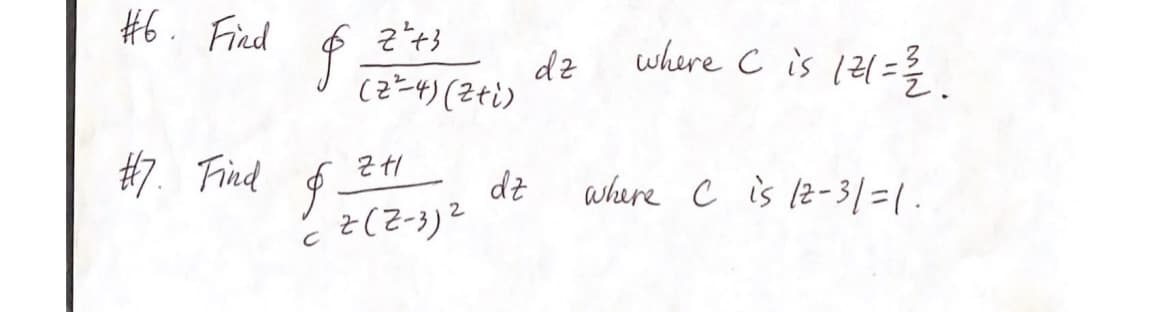 #6. Find ∮ z²+3 / (z²-4)(z+i) dz where C is |z|=3/2.
#7. Find ∮_C z+1 / z(z-3)² dz where C is |z-3|=1.